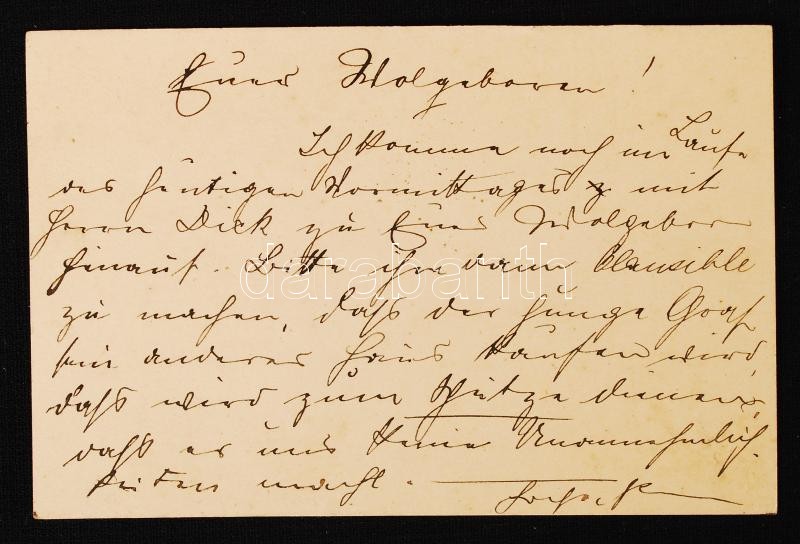 Euer Wolgeboren!
Ich komme noch im Laufe
des heutigen Vormittages mit
Herrn Dick zu Euer Wolgeborn
hinauf. Bitte ihm dann
zu machen, daß der junge Graf
ein anderes Haus kaufen wird,
daß wird zum dienen,
daß es uns keine Unannehmlich-
keiten macht.
darabanth